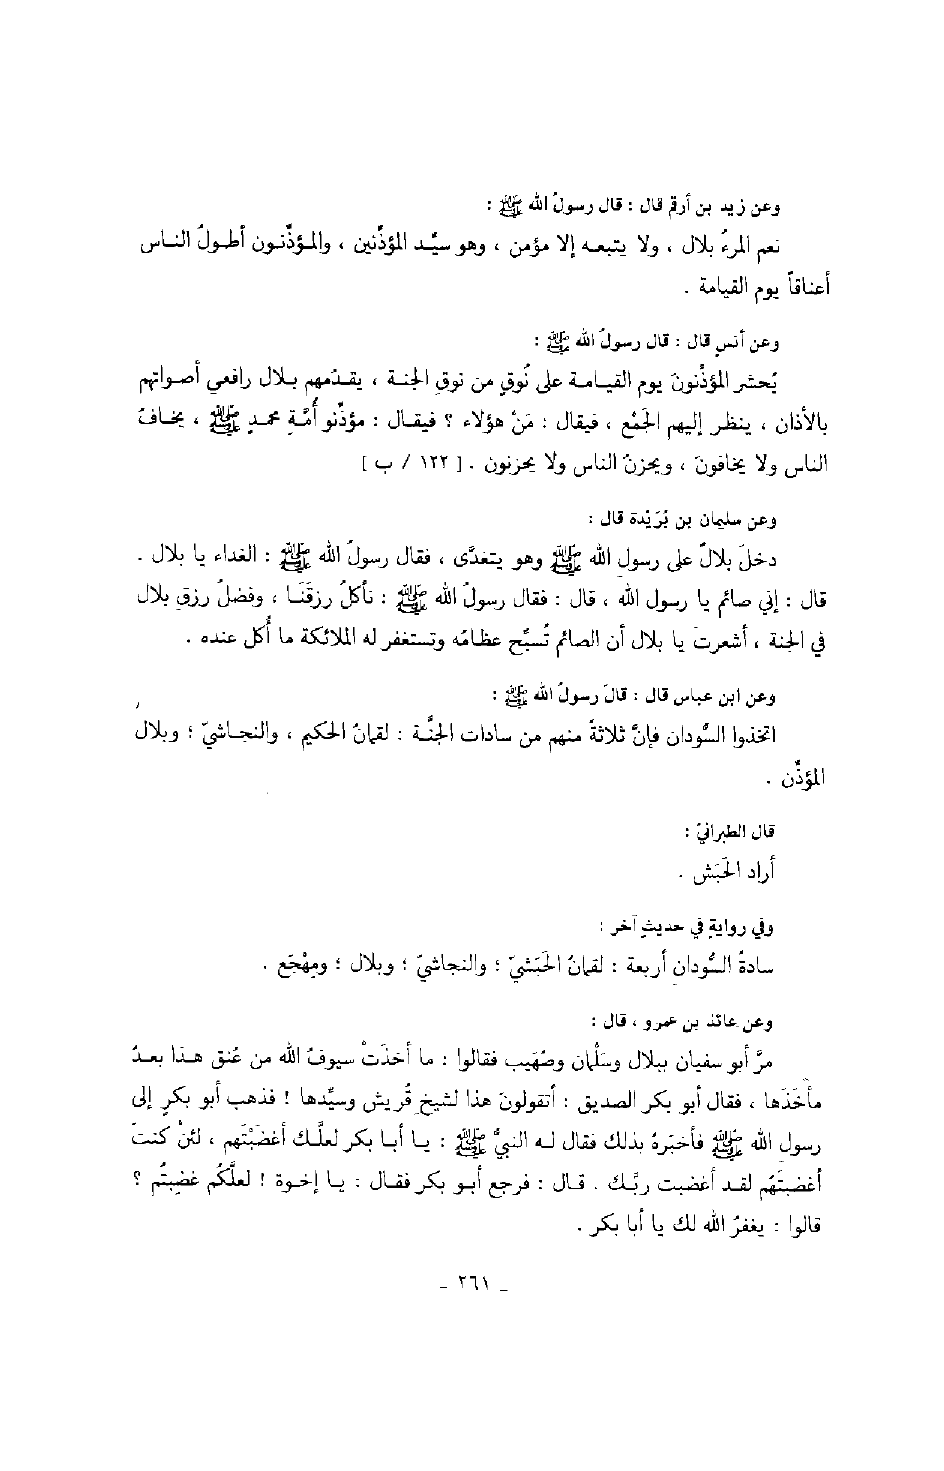 وعن زيد بن أرقم قال : قال رسولُ الله ﷺ :
نعم المرءُ بلال ، ولا يتبعـه إلا مؤمن ، وهو سيِّـد المؤذِّنين ، والمـؤذِّنـون أطـولُ النـاس
أعنـاقاً يوم القيامة .
وعن أنسٍ قال : قال رسولُ الله ﷺ :
يُحشر المؤذِّنونَ يوم القيـامـة على نُوقٍ من نوقِ الجنـة ، يقـدّمهم بـلال رافعي أصـواتهم
بالأذان ، ينظـر إليهم الجَمْع ، فيقـال : مَنْ هؤلاء ؟ فيقـال : مؤذِّنو أُمَّـةِ محمـدٍ ﷺ ، يخـافُ
الناس ولا يخافونَ ، ويحزنُ الناس ولا يحزنون . [ ١٢٢ / ب ]
وعن سليمان بن بُرَيْدة قال :
دخلَ بلالٌ على رسول الله ﷺ وهو يتغدَّى ، فقال رسولُ الله ﷺ : الغداء يا بلال .
قال : إني صائم يا رسول الله ، قال : فقال رسولُ الله ﷺ : نأكلُ رزقَنَـا ، وفضلُ رزقِ بلال
في الجنة ، أشعرتَ يا بلال أن الصائم تُسبِّح عظامُه وتستغفر له الملائكة ما أُكل عنده .
وعن ابن عباس قال : قالَ رسولُ الله ﷺ :
اتخذوا السُّودان فإنَّ ثلاثةً منهم من سادات الجنَّـة : لقمانُ الحكيم ، والنجـاشيّ ؛ وبـلال
المؤذِّن .
قال الطبرانيّ :
أراد الحَبَش .
وفي روايةٍ في حديثٍ آخر :
سادةُ السُّودانِ أربعة : لقمانُ الحَبَشيّ ؛ والنجاشيّ ؛ وبلال ؛ ومِهْجَع .
وعن عائذ بن عمرو ، قال :
مرَّ أبو سفيان ببلال وسَلْمان وصُهَيب فقالوا : ما أخذَتْ سيوفُ الله من عُنق هـذا بعـدُ
مأخَذَها ، فقال أبو بكر الصديق : أتقولونَ هذا لشيخِ قُريش وسيِّدها ! فذهب أبو بكرٍ إلى
رسول الله ﷺ فأخبَرهُ بذلك فقال لـه النبيُّ ﷺ : يـا أبـا بكر لعلَّـك أغضَبْتَهم ، لئنْ كنتَ
أغضبتَهُم لقـد أغضبت ربَّـك . قـال : فرجع أبـو بكر فقـال : يـا إخـوة ! لعلَّكُم غضِبتُم ؟
قالوا : يغفرُ الله لك يا أبا بكر .
ـ ٢٦١ ـ